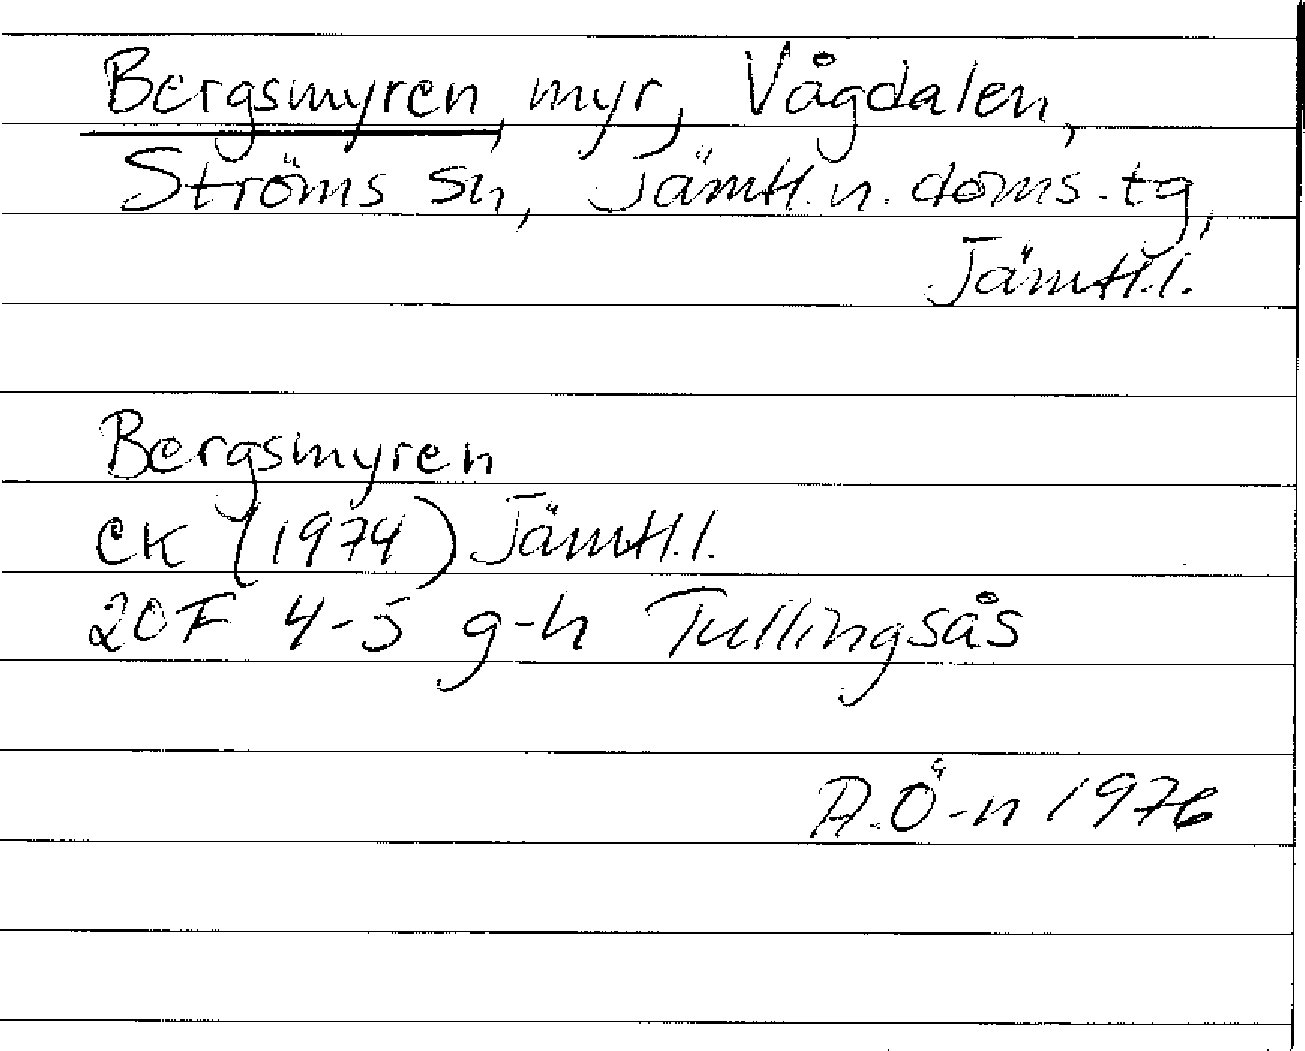 Bergsmyren, myr, Vågdalen,
Ströms sn, Jämtl. n. doms.-tg,
Jämtl.l.
Bergsmyren
CK (1974) Jämtl.l.
20F 4-5 g-h Tullingsås
A.Ö-n 1976